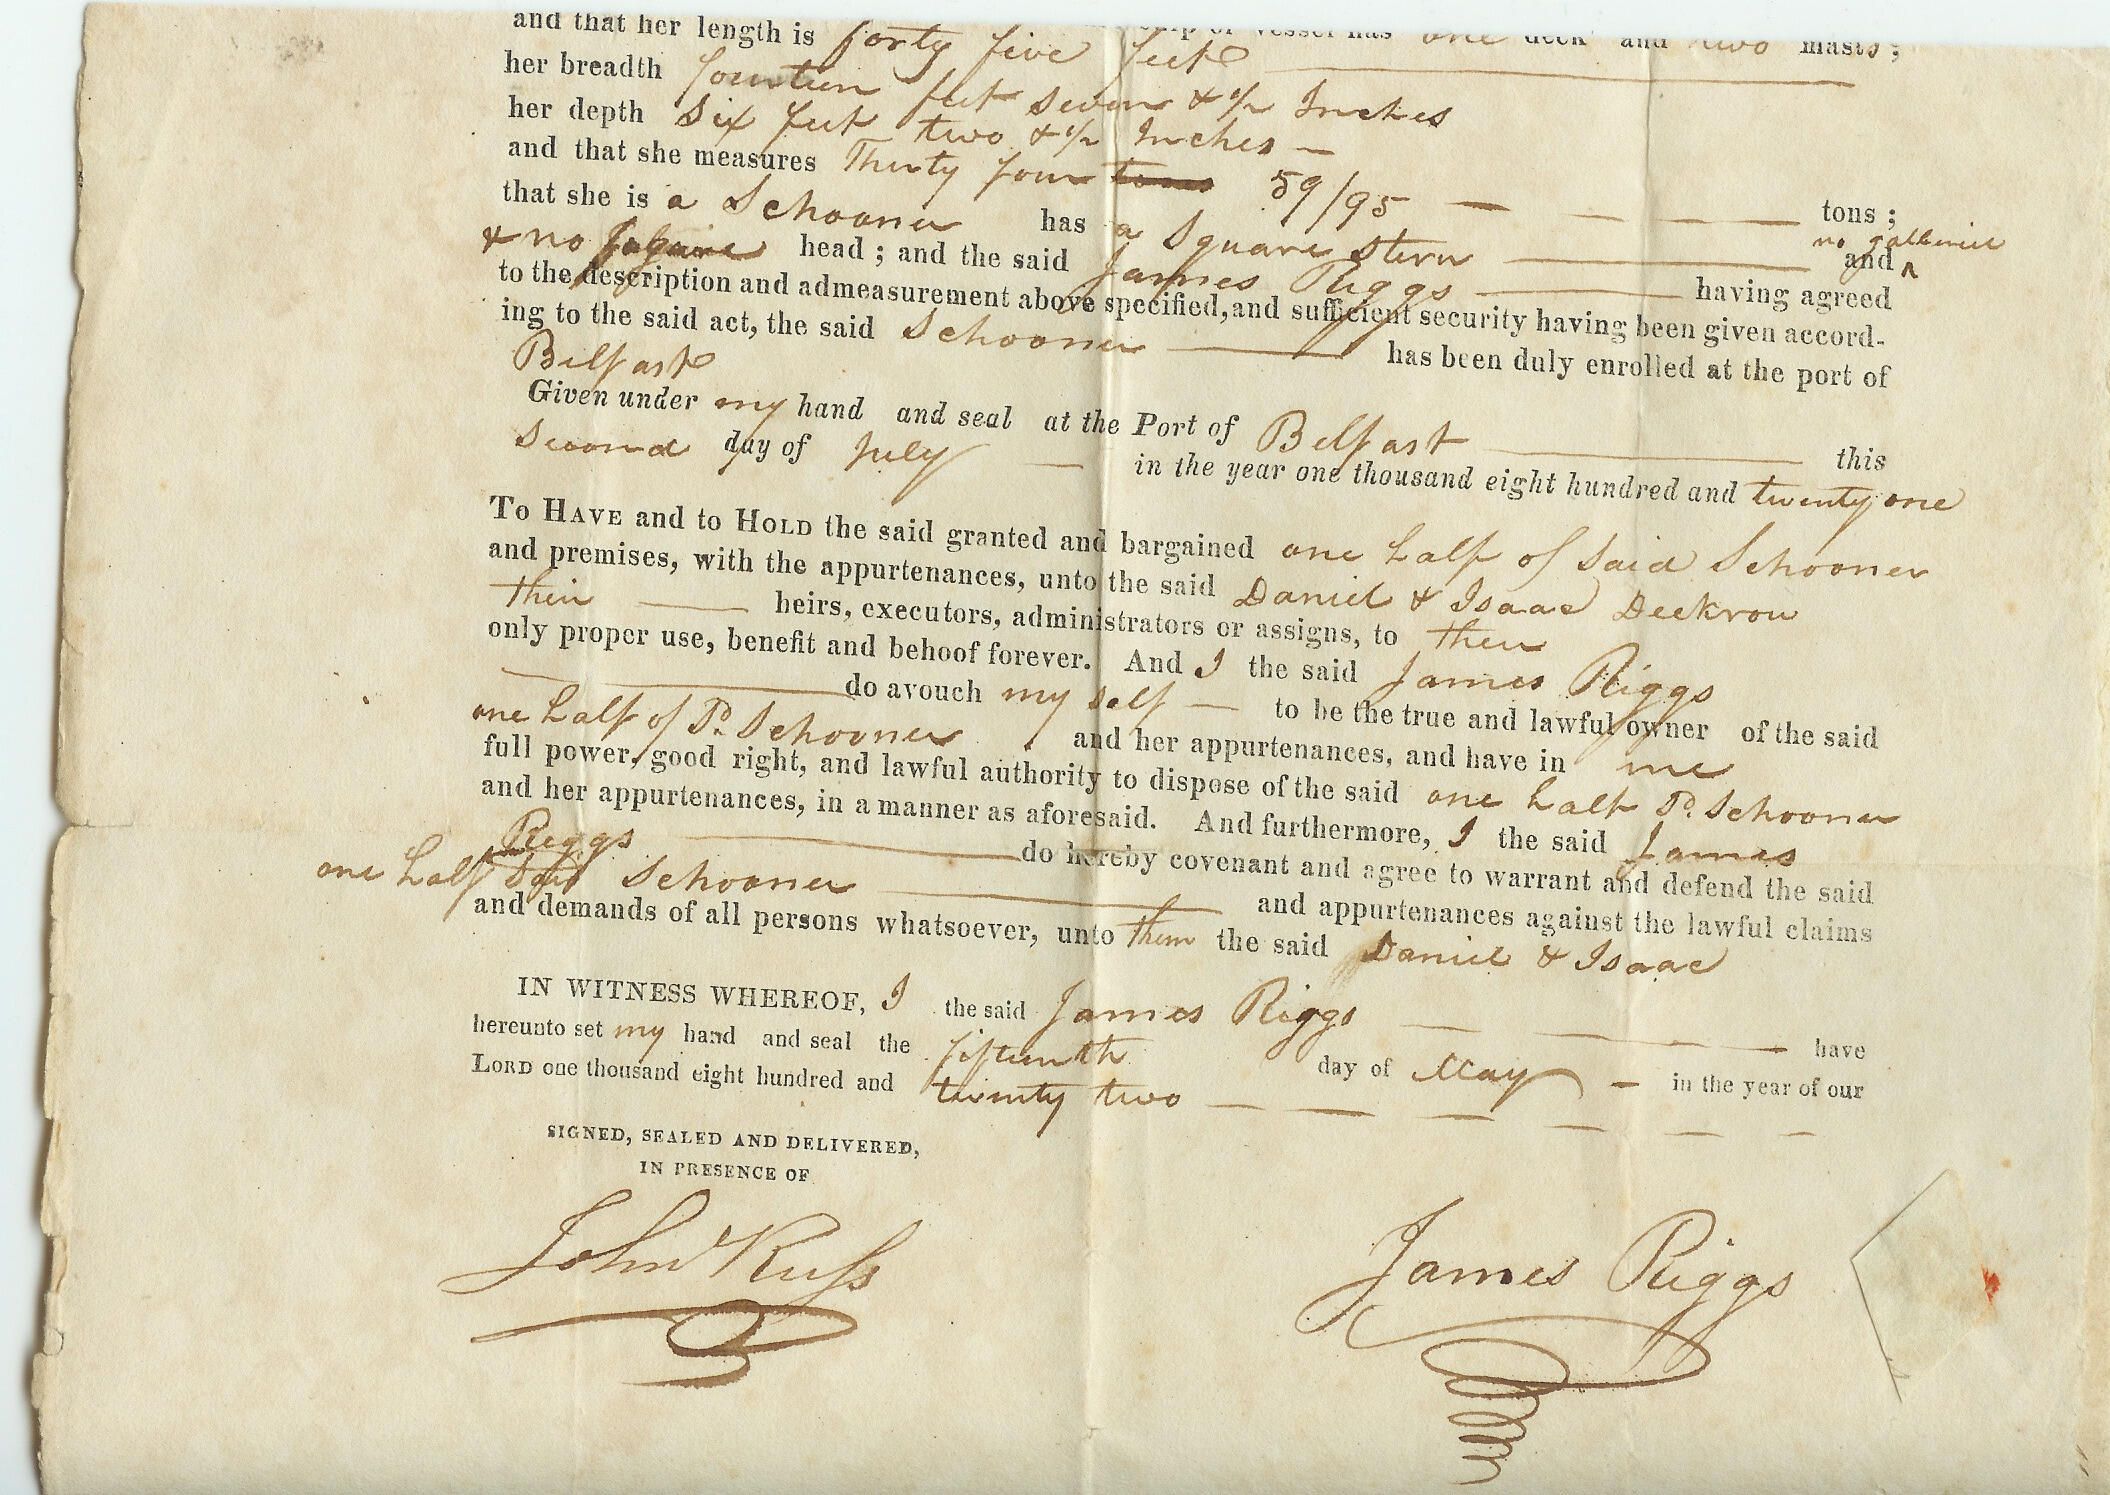 ship or vessel has one deck and two masts;
and that her length is forty five feet
her breadth fourteen feet seven & 1/2 Inches
her depth Six feet two & 1/2 Inches
and that she measures Thirty four tons 59/95 tons;
that she is a Schooner has a Square Stern and no galleries
& no figure head; and the said James Riggs having agreed
to the description and admeasurement above specified, and sufficient security having been given accord-
ing to the said act, the said Schooner has been duly enrolled at the port of
Belfast
Given under my hand and seal at the Port of Belfast this
Second day of July in the year one thousand eight hundred and twenty one
To HAVE and to HOLD the said granted and bargained one half of Said Schooner
and premises, with the appurtenances, unto the said Daniel & Isaac Deckrow
their heirs, executors, administrators or assigns, to their
only proper use, benefit and behoof forever. And I the said James Riggs
do avouch my self to be the true and lawful owner of the said
one half of Sd. Schooner and her appurtenances, and have in me
full power, good right, and lawful authority to dispose of the said one half Sd. Schooner
and her appurtenances, in a manner as aforesaid. And furthermore, I the said James
Riggs do hereby covenant and agree to warrant and defend the said
one half Said Schooner and appurtenances against the lawful claims
and demands of all persons whatsoever, unto them the said Daniel & Isaac
IN WITNESS WHEREOF, I the said James Riggs have
hereunto set my hand and seal the fifteenth day of May in the year of our
LORD one thousand eight hundred and twenty two
SIGNED, SEALED AND DELIVERED,
IN PRESENCE OF
John Russ
James Riggs